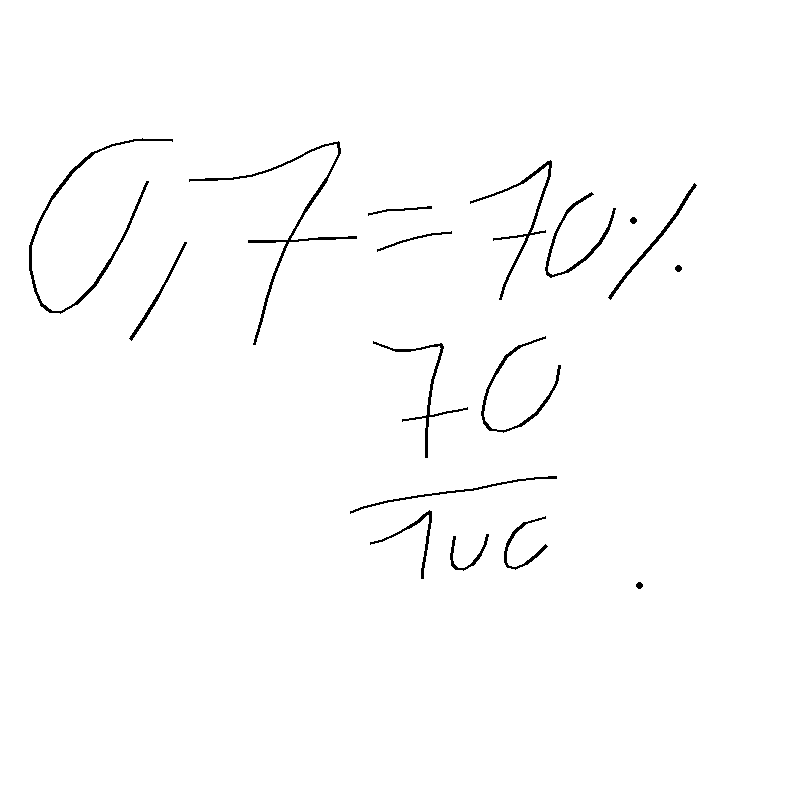 0,7 = 70%
70
100